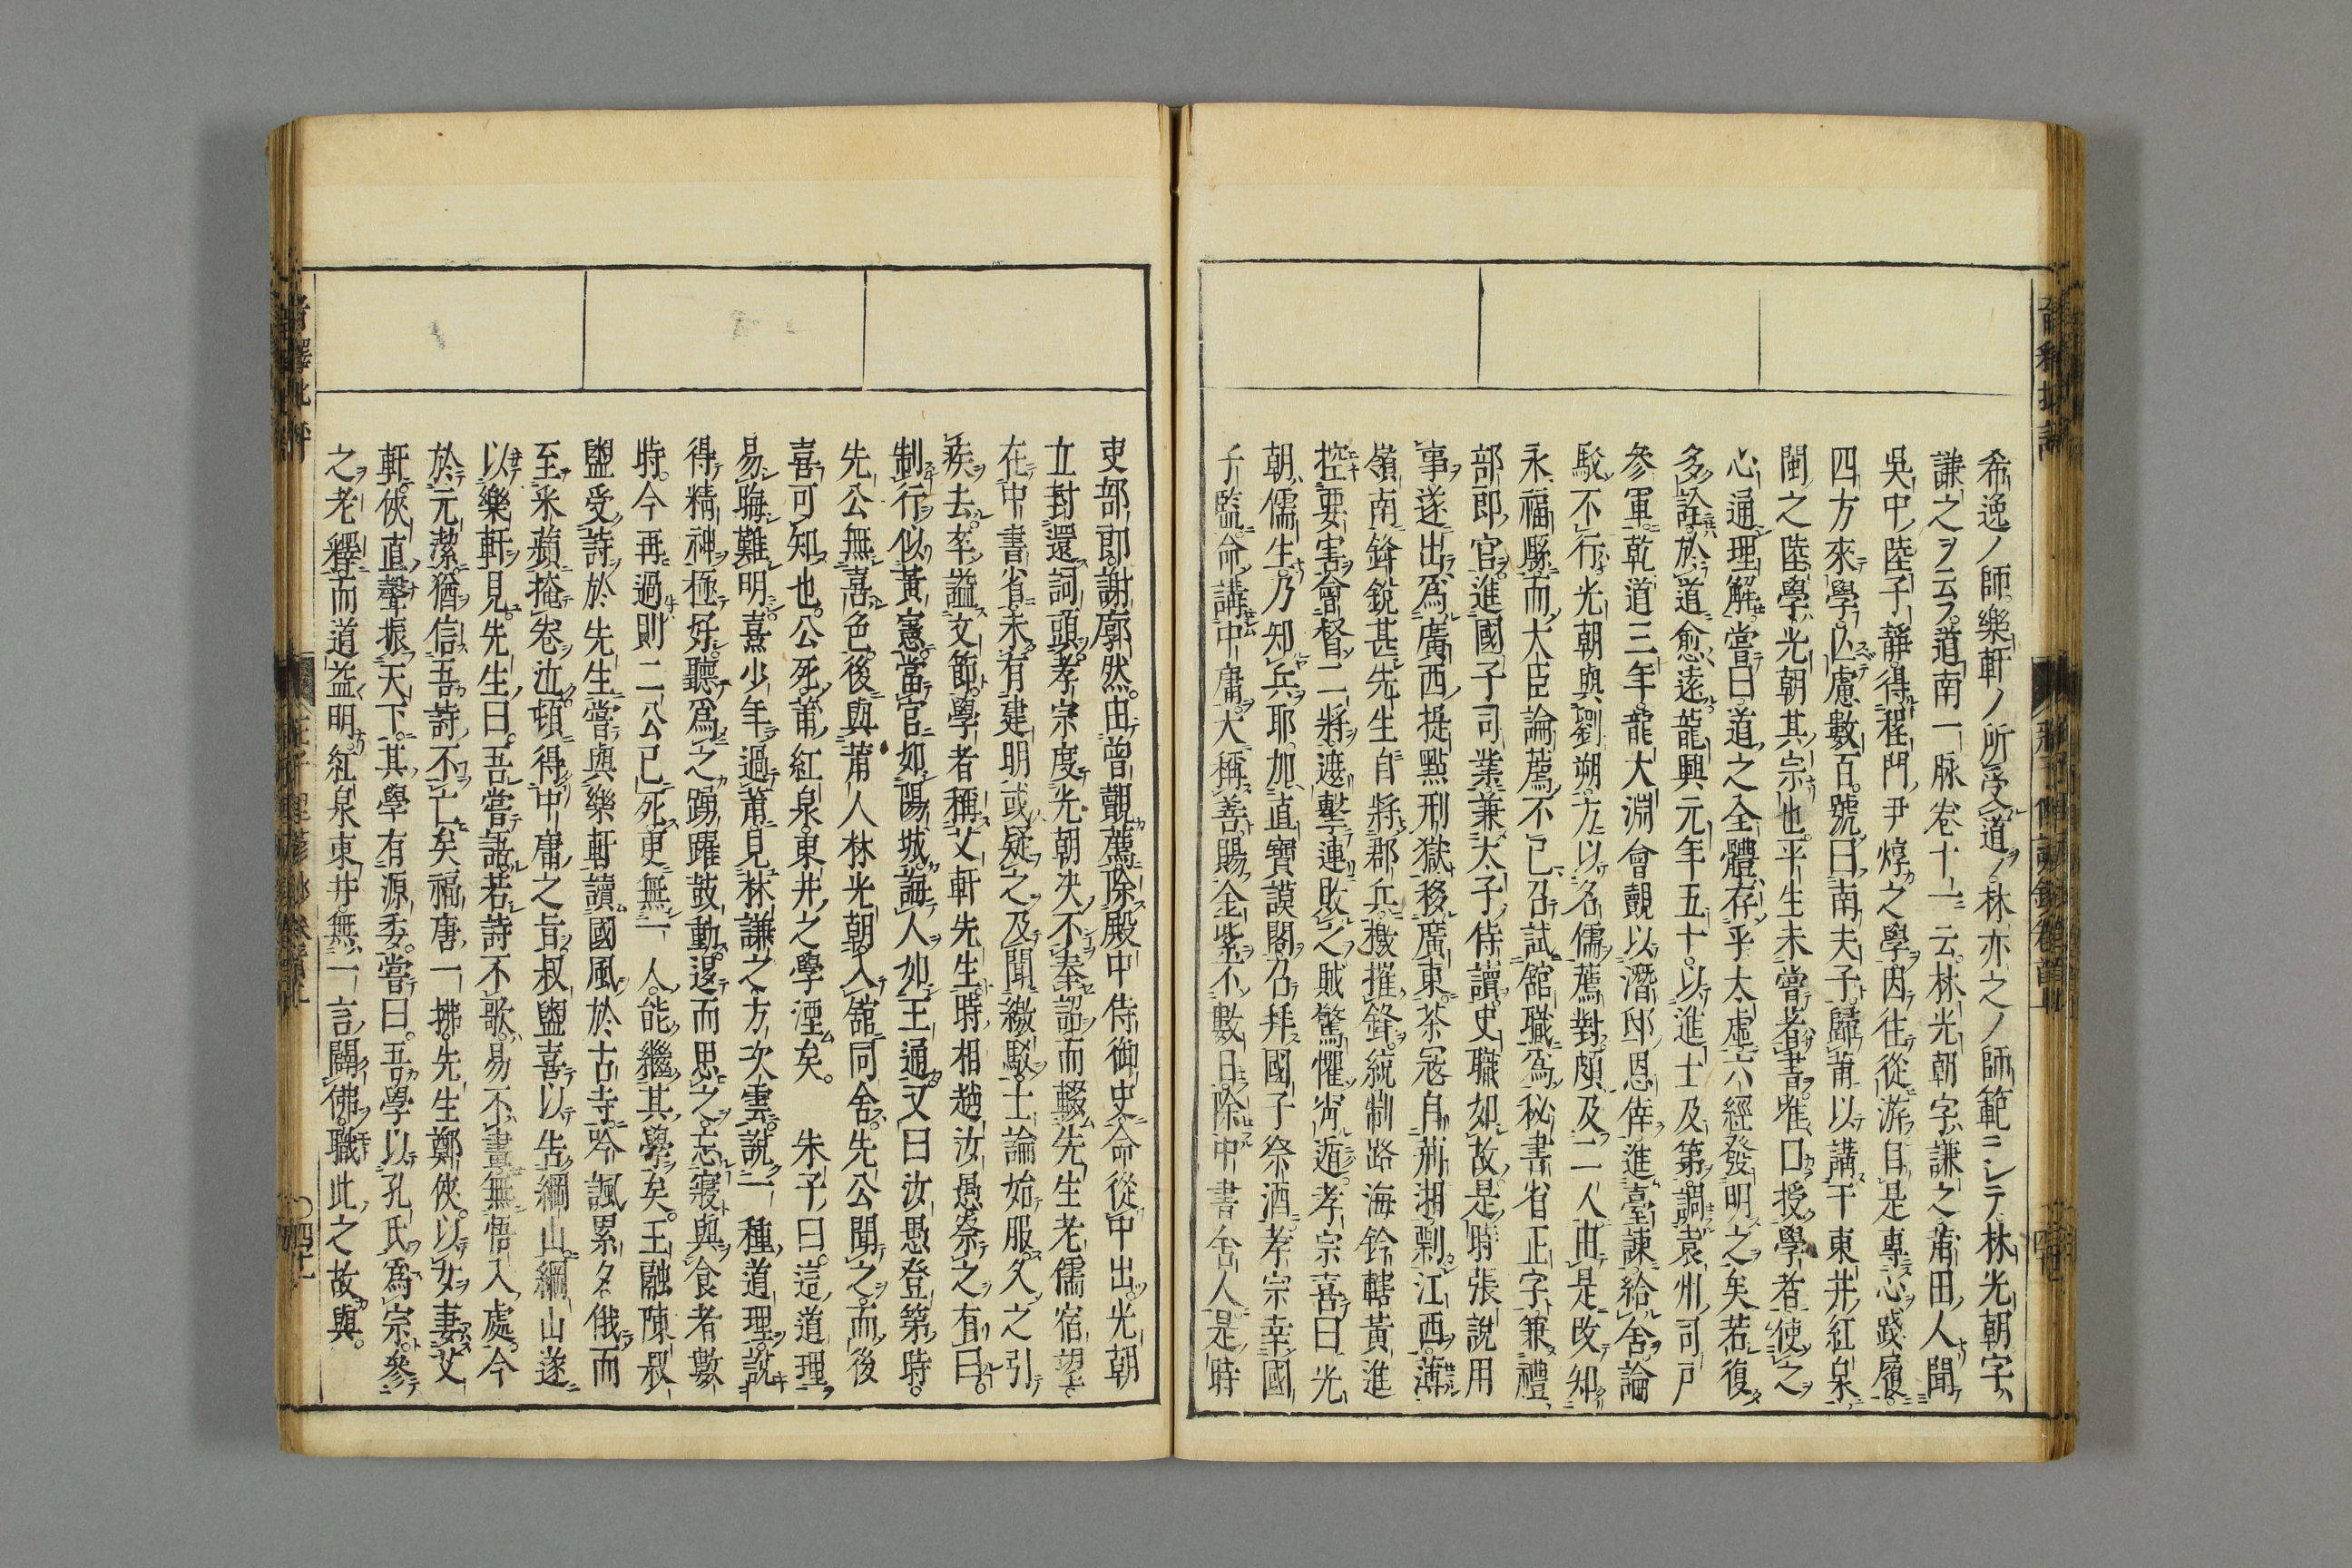 希逸ノ師樂軒ノ所受道ノ林亦之ノ師範ニシテ林光朝字ハ
謙之ヲ云フ道南一脉卷十一ニ云林光朝字謙之莆田人聞
吳中陸子靜得程門尹焞之學因往從游自是專心踐履
四方來學亾慮數百號曰南夫子歸莆以講于東井紅泉
閩之陸學光朝其宗也平生未嘗著書惟口授學者使之
心通理解嘗曰道之全體存乎太虛六經發明之矣若復
多詮於道愈遠龍興元年五十以進士及第調袁州司戸
參軍乾道三年龍大淵會覿以潛邸恩倖進臺諫給舍論
駁不行光朝與劉朔方以名儒薦對頗及二人由是改知
永福縣而大臣論薦不已召試舘職爲秘書省正字兼禮
部郎官進國子司業兼太子侍讀史職如故是時張說用
事遂出爲廣西提點刑獄移廣東茶寇自荊湘剽江西薄
嶺南鋒銳甚先生自將郡兵檄摧鋒統制路海鈐轄黃進
控要害會督二將遮擊連敗之賊驚懼宵遁孝宗喜曰光
朝儒生乃知兵耶加直寶謨閣召拜國子祭酒孝宗幸國
子監命講中庸大稱善賜金紫不數日除中書舍人是時
吏部郎謝廓然由曾覿薦除殿中侍御史命從中出光朝
立封還詞頭孝宗度光朝决不奉詔而輟先生老儒宿望
在中書省未有建明或疑之及聞繳駁士論始服久之引
疾去卒謚文節學者稱艾軒先生時相趙汝愚祭之有曰
制行似黃憲當官如陽城誨人如王通又曰汝愚登第時
先公無喜色後與莆人林光朝入舘同舍先公聞之而後
喜可知也公死莆紅泉東井之學湮矣　朱子曰這道理
易晦難明熹少年過莆見林謙之方次雲說一種道理說
得精神極好聽爲之踴躍鼓動退而思之忘寢與食者數
時今再過則二公已死更無一人能繼其學矣王融陳叔
盥受詩於先生嘗與樂軒讀國風於古寺吟諷累夕俄而
至采蘋掩卷泣頓得中庸之旨叔盥喜以告綱山綱山遂
以樂軒見先生曰吾嘗語若詩不歌易不畫無悟入處今
於元潔猶信吾詩不亡矣福唐一拂先生鄭俠以女妻艾
軒俠直聲振天下其學有源委嘗曰吾學以孔氏爲宗參
之老釋而道益明紅泉東井無一言闢佛職此之故與